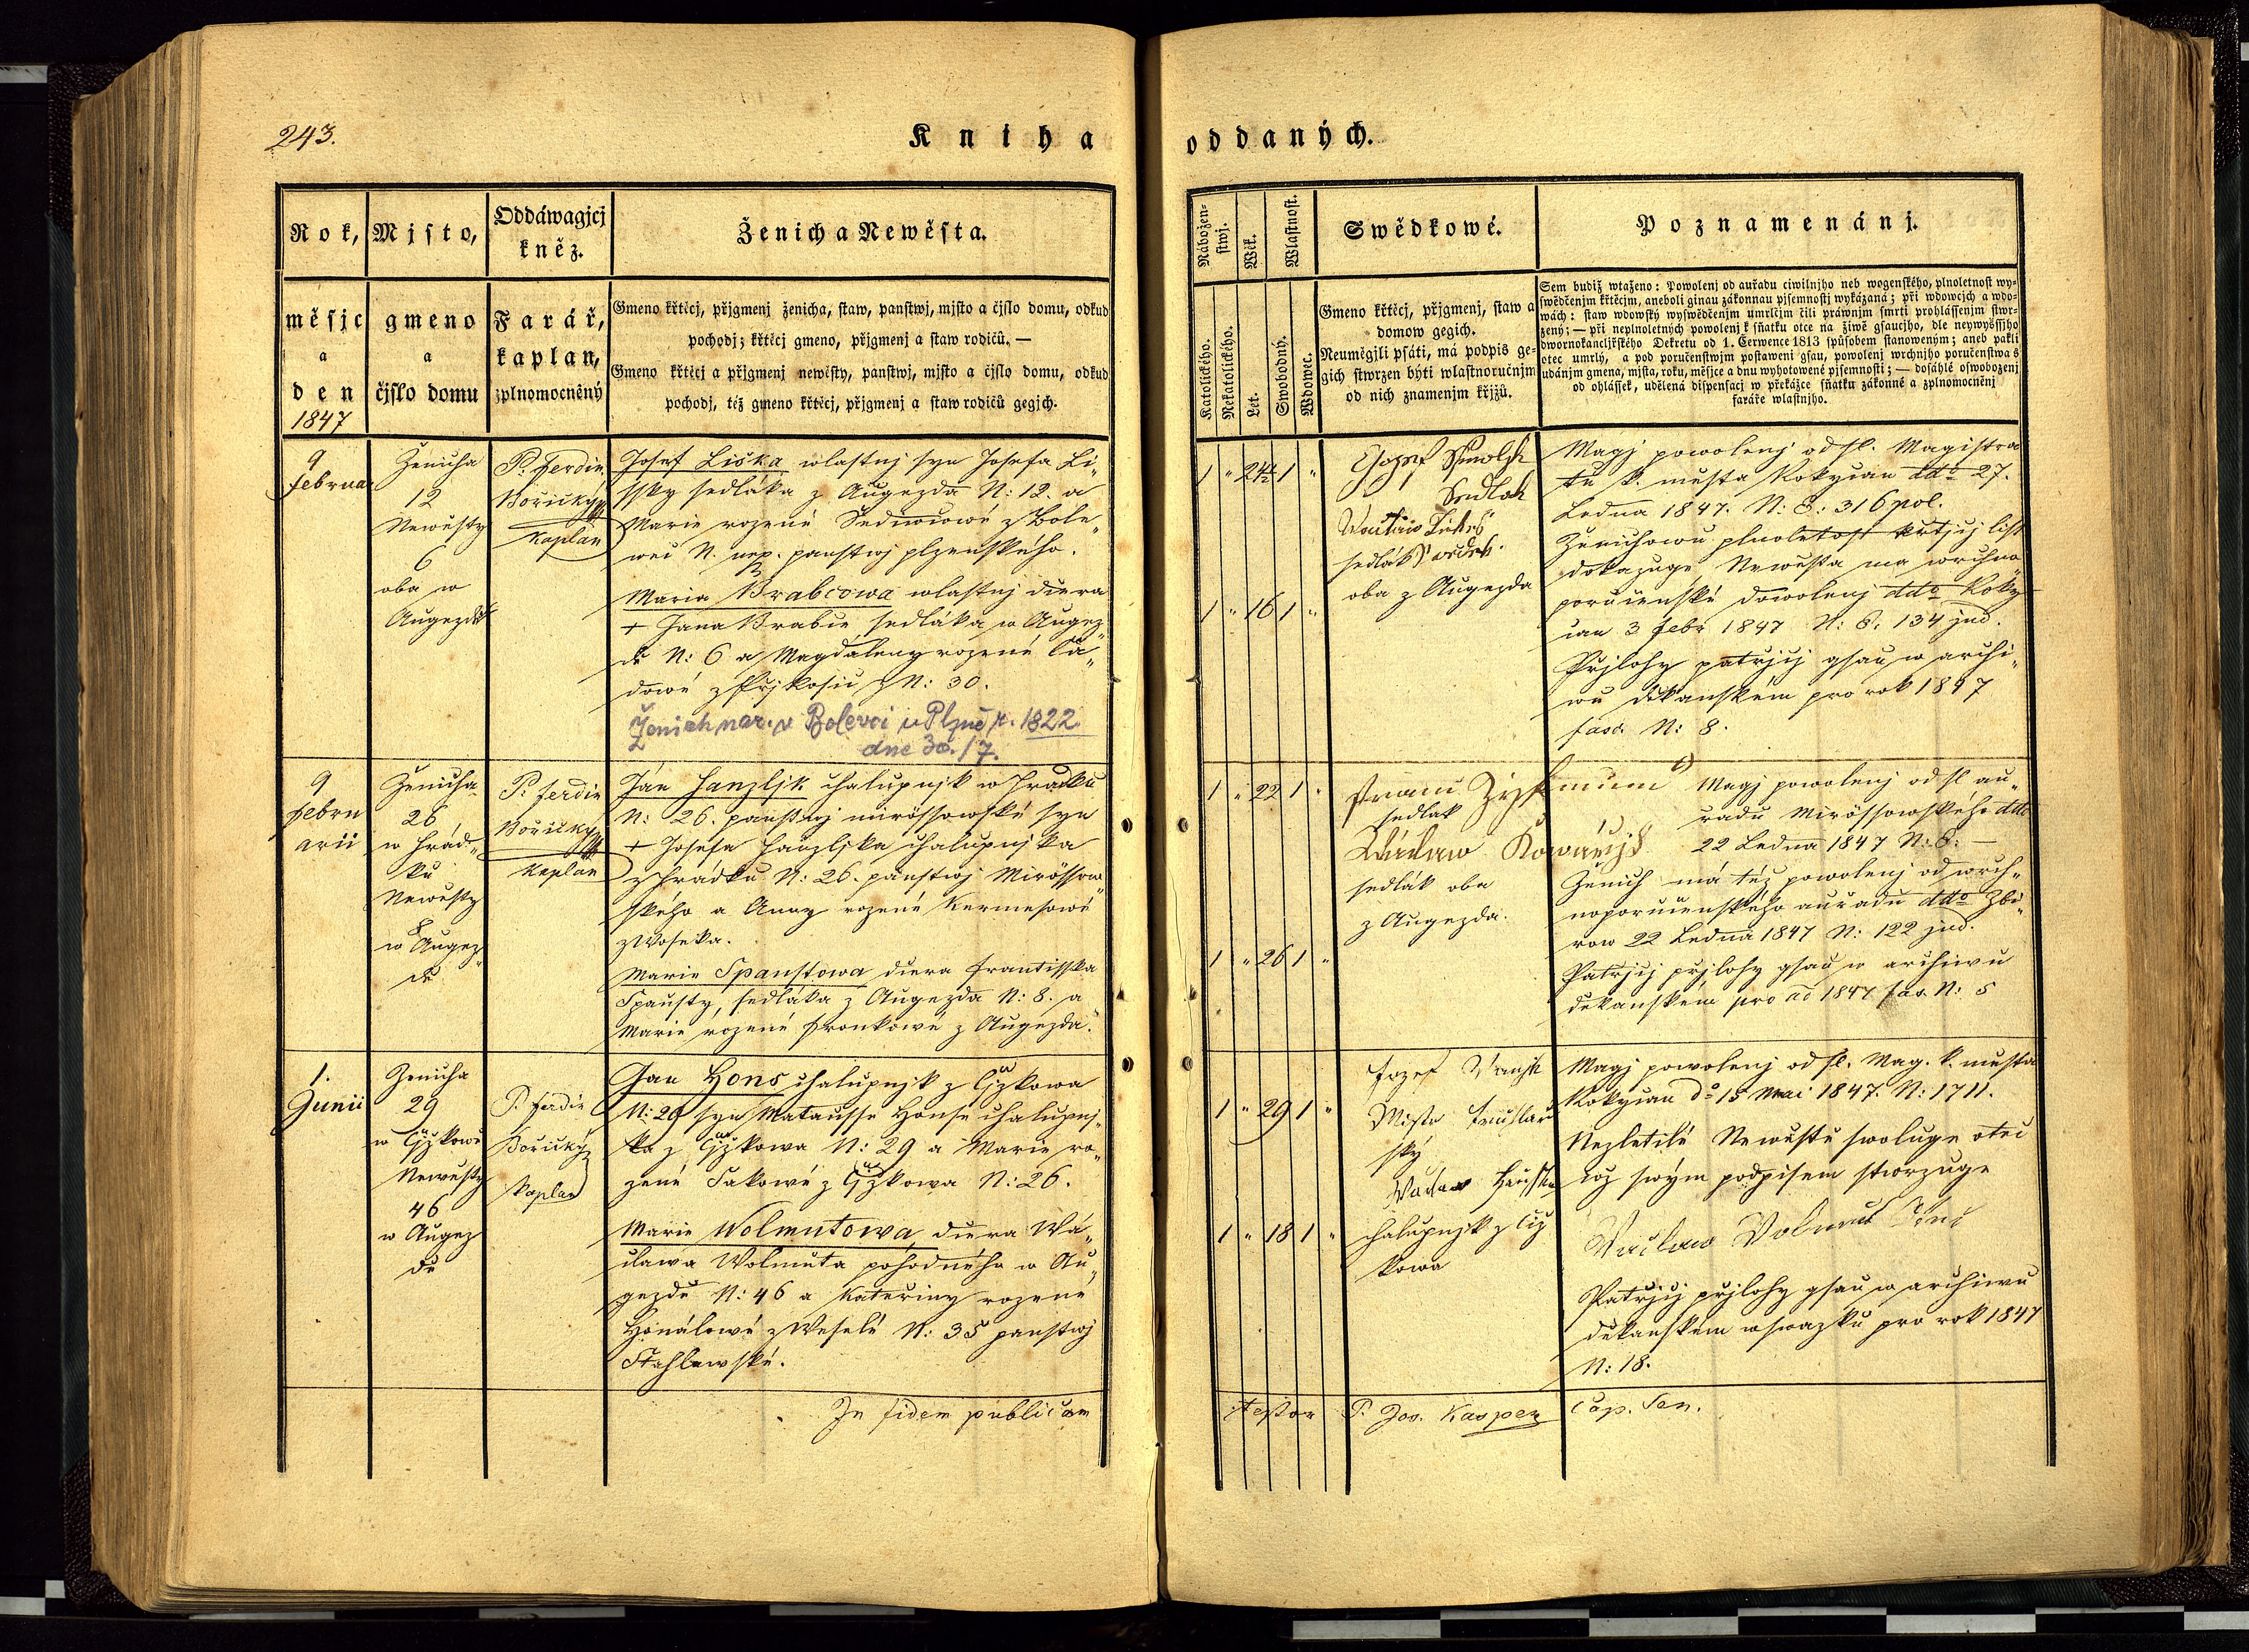 243.
Kniha
oddaných.
Rok,
Mjsto,
Oddáwagjcj
kněz.
Ženich a Newěsta.
měsjc
a
den
1847
gmeno
a
čjslo domu
Farář,
kaplan,
zplnomocněný
Gmeno křtěcj, přjgmenj ženicha, staw, panstwj, mjsto a čjslo domu, odkud
pochodj; křtěcj gmeno, přjgmenj a staw rodičů. —
Gmeno křtěcj a přjgmenj newěsty, panstwj, mjsto a čjslo domu, odkud
pochodj, též gmeno křtěcj, přjgmenj a staw rodičů gegjch.
9
februar
Ženicha
12
Newěsty
6
oba w
Augezdě
P. Ferdin.
Bořický
Kaplan
Josef Liška wlastnj syn Josefa Li„
ssky sedláka z Augezda N: 12. a
Marie rozené z Bole„
wci N. nep. panstwj plzenského.
Maria Brabcowa wlastnj dcera
+ Jana Brabce sedláka w Augez„
dě N: 6 a Magdaleny rozené
dowé z N: 30.
Ženich nar. v Bolevci u Plzně r. 1822
dne 30./7.
9
febru
arii
Ženicha
26
w Hrád„
ku
Newěsty
8
w Augez„
dě
P. Ferdin
Bořický
Kaplan
Ján Hanzljk chalupnjk w Hradku
N: 26. panstwj mirössowské syn
+ Josefa Hanzljka chalupnjka
z Hrádku N: 26. panstwj Mirössow„
ského a Anny rozené Kermesowé
z Woseka.
Marie Spaustowa dcera Frantisska
Spausty, sedláka z Augezda N: 8. a
Marie rozené Fronkowé z Augezda.
1.
Junii
Ženicha
29
w Cjzkowě
Newěsty
46
w Augez
dě
P. Ferdin
Bořický
Kaplan
Jan Hons chalupnjk z Cjzkowa
N: 29 syn Matausse Honse chalupnj„
ka z Cjzkowa N: 29 a Marie ro„
zené Sakowé z Cjzkowa N: 26.
Marie Wolmutowa, dcera Wá„
clawa Wolmuta pohodného w Au„
gezdě N: 46 a Kateřiny rozené
Honálowé z Weselé N: 35 panstwj
Stahlawské.
In fidem publicam
Nábožen-
stwj.
Wěk.
Wlastnost.
Swědkowé.
Poznamenánj.
Katolického.
Nekatolického.
Let.
Swobodný.
Wdowec.
Gmeno křtěcj, přjgmenj, staw a
domow gegich.
Neumějgli psáti, má podpis ge-
gich stwrzen býti wlastnoručnjm
od nich znamenjm křjžů.
Sem budiž wtaženo: Powolenj od auřadu ciwilnjho neb wogenského, plnoletnost wy-
swědčenjm křtěcjm, aneboli ginau zákonnau pjsemnostj wykázaná; při wdowcjch a wdo-
wách: staw wdowský wyswědčenjm umrlčjm čili práwnjm smrti prohlássenjm stwr-
zený; — při neplnoletných powolenj k sňatku otce na žiwě gsaucjho, dle neywyššjho
dwornokancljřského Dekretu od 1. Čerwence 1813 spůsobem stanoweným; aneb pakli
otec umrlý, a pod poručenstwjm postaweni gsau, powolenj wrchnjho poručenstwa s
udánjm gmena, mjsta, roku, měsjce a dnu wyhotowené pjsemnosti; — dosáhlé oswobozenj
od ohlássek, udělená dispensacj w překážce sňatku zákonné a zplnomocněnj
faráře wlastnjho.
1 „ 24½ 1 „
1 „ 16 1 „
Sedlak
sedlák
oba z Augezda
Magj powolenj od sl. Magistra
tu k. města Rokycan ddo 27.
Ledna 1847. N: E: 316 pol.
Ženichowu plnoletost křtjcj list
dokazuge Newěsta ma wrchno
poručenské dowolenj ddto Roky
can 3 febr 1847 N: E. 134 jud.
Přjlohy patřjcj gsau w archi„
wu děkanském pro rok 1847
fasc. N: 8.
1 „ 22 1 „
1 „ 26 1 „
sedlak
sedlák oba
z Augezda.
Magj powolenj od sl au„
radu Mirössowského ddto
22 Ledna 1847 N: E: —
Ženich má též powolenj od wrch„
noporučenského auřadu ddto Zbi„
row 22 Ledna 1847 N: 122 jud.
Patřjcj přjlohy gsau w archiwu
děkanském pro ao 1847 fas. N: 5
1 „ 29 1 „
1 „ 18 1 „
Jozef
chalupnjk z Ciz
kowa
Magj powolenj od sl. Mag. k. města
Rokycan do 15 Mai 1847. N: 1711.
Nezletilé Newěstě swoluge otec
což swým podpisem stwrzuge
Waclaw Volmut
Patřjcj přjlohy gsau w archiwu
děkanském w swazku pro rok 1847
N: 18.
testor P. Jos. Kasper Cap. Sen.